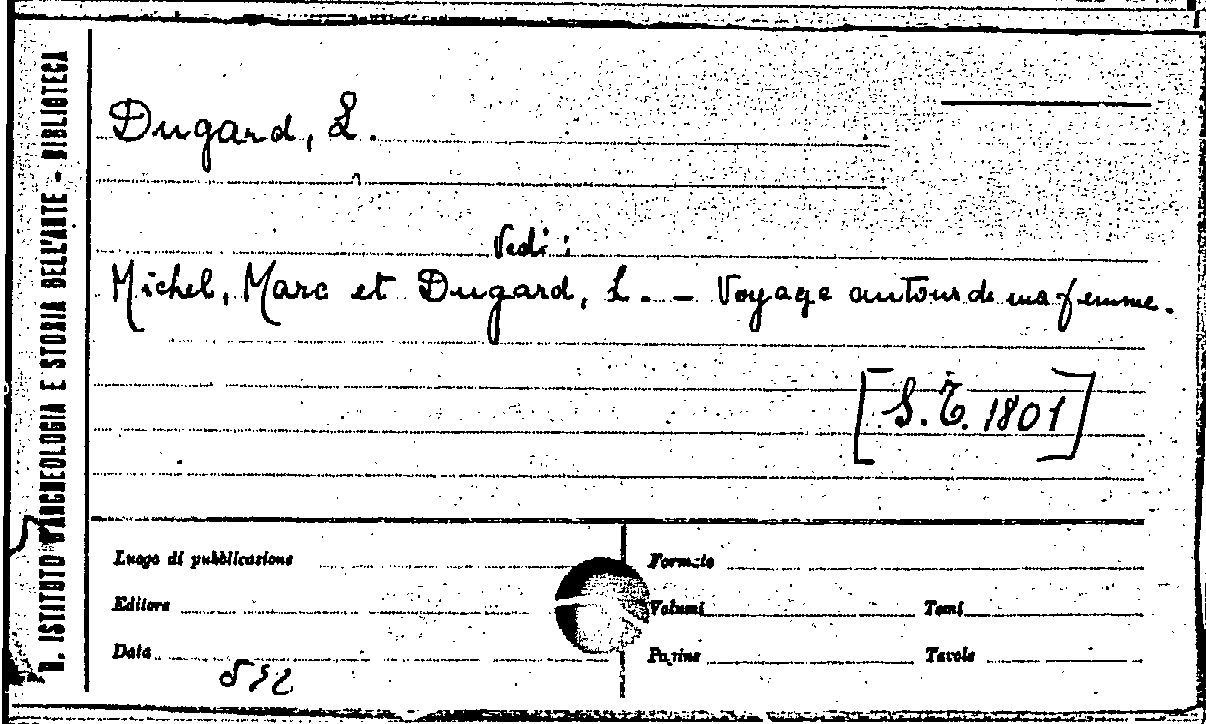 R. ISTITUTO D'ARCHEOLOGIA E STORIA DELL'ARTE - BIBLIOTECA
Dugard, L.
Vedi:
Michel, Marc et Dugard, L. - Voyage autour de ma femme.
[S.T. 1801]
Luogo di pubblicazione
Formato
Editore
Volumi
Tomi
Data
Pagine
Tavole